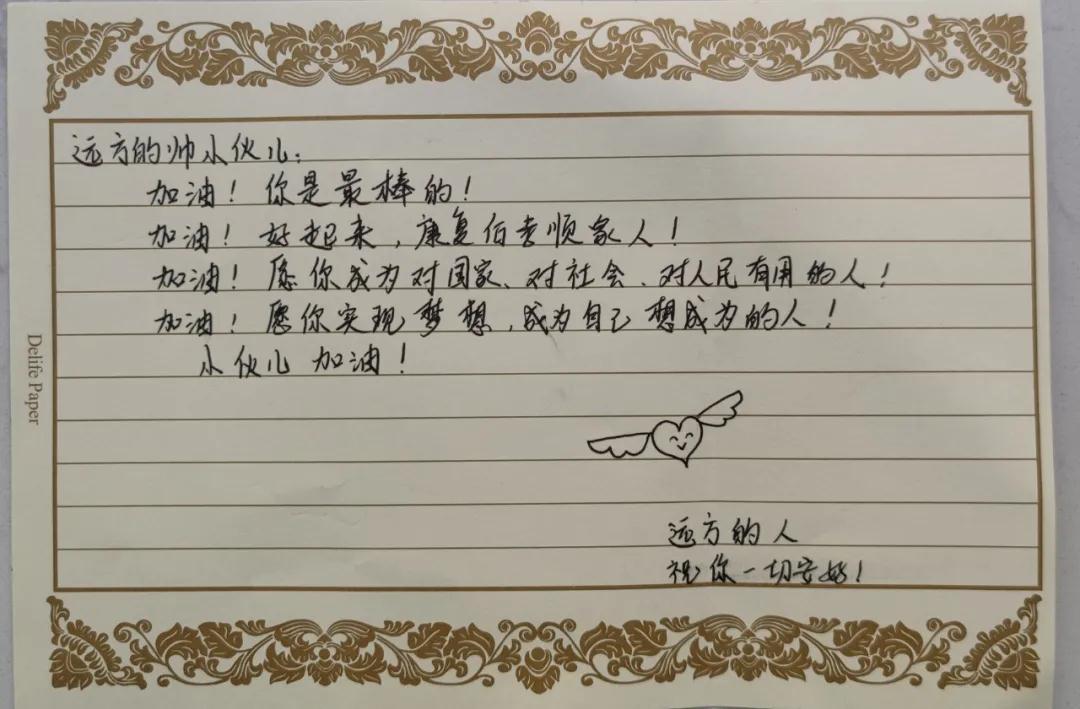 远方的帅小伙儿：
加油！你是最棒的！
加油！好起来，康复后孝顺家人！
加油！愿你成为对国家、对社会、对人民有用的人！
加油！愿你实现梦想，成为自己想成为的人！
小伙儿 加油！
远方的人
祝你一切安好！
Delife Paper